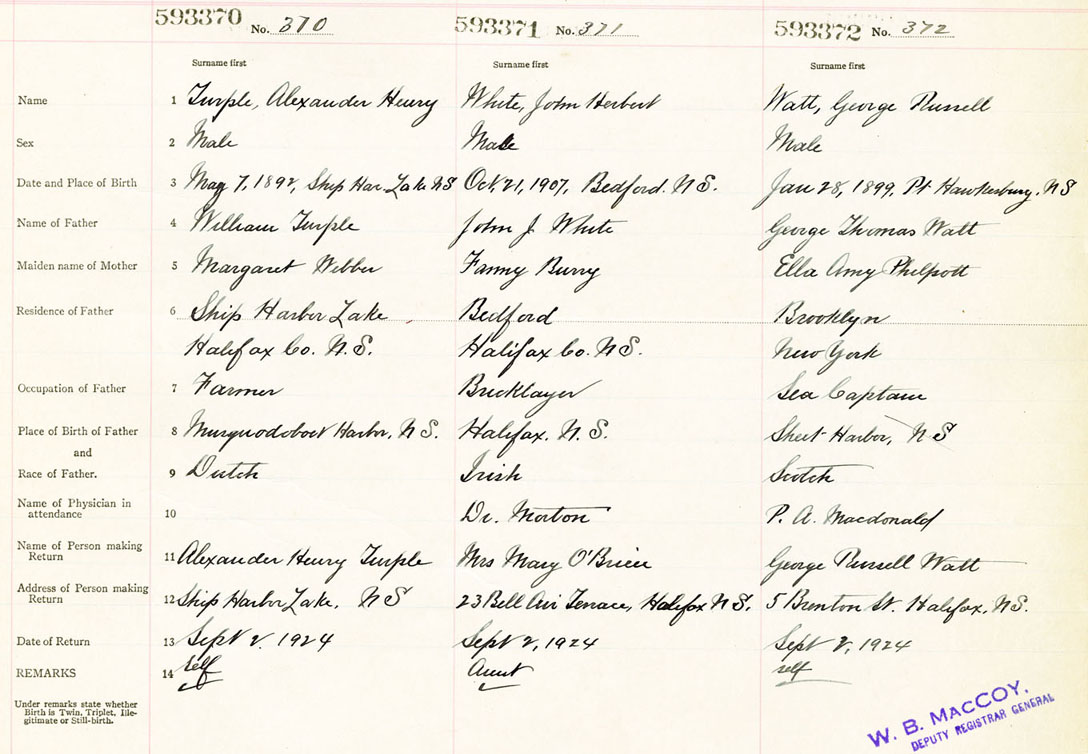 593370 No. 370 593371 No. 371 593372 No. 372
Surname first Surname first Surname first
Name 1 Turple, Alexander Henry White, John Herbert Watt, George Russell
Sex 2 Male Male Male
Date and Place of Birth 3 May 7, 1892, Ship Har. Lake NS Oct. 21, 1907, Bedford. N.S. Jan 28, 1899, Pt Hawkesbury, NS
Name of Father 4 William Turple John J. White George Thomas Watt
Maiden name of Mother 5 Margaret Webber Fanny Burry Ella Amy Philpott
Residence of Father 6 Ship Harbor Lake Bedford Brooklyn
Halifax Co. N.S. Halifax Co. N.S. New York
Occupation of Father 7 Farmer Bricklayer Sea Captain
Place of Birth of Father 8 Musquodoboit Harbor, N.S. Halifax. N.S. Sheet Harbor, N S
and
Race of Father. 9 Dutch Irish Scotch
Name of Physician in
attendance 10 Dr. Morton P. A. Macdonald
Name of Person making
Return 11 Alexander Henry Turple Mrs Mary O'Brien George Russell Watt
Address of Person making
Return 12 Ship Harbor Lake, N S 23 Bell Air Terrace, Halifax N S. 5 Brenton St. Halifax, N.S.
Date of Return 13 Sept 2. 1924 Sept 2, 1924 Sept 2, 1924
REMARKS 14 self Aunt self
Under remarks state whether
Birth is Twin, Triplet, Ille-
gitimate or Still-birth.
W. B. MACCOY.
DEPUTY REGISTRAR GENERAL